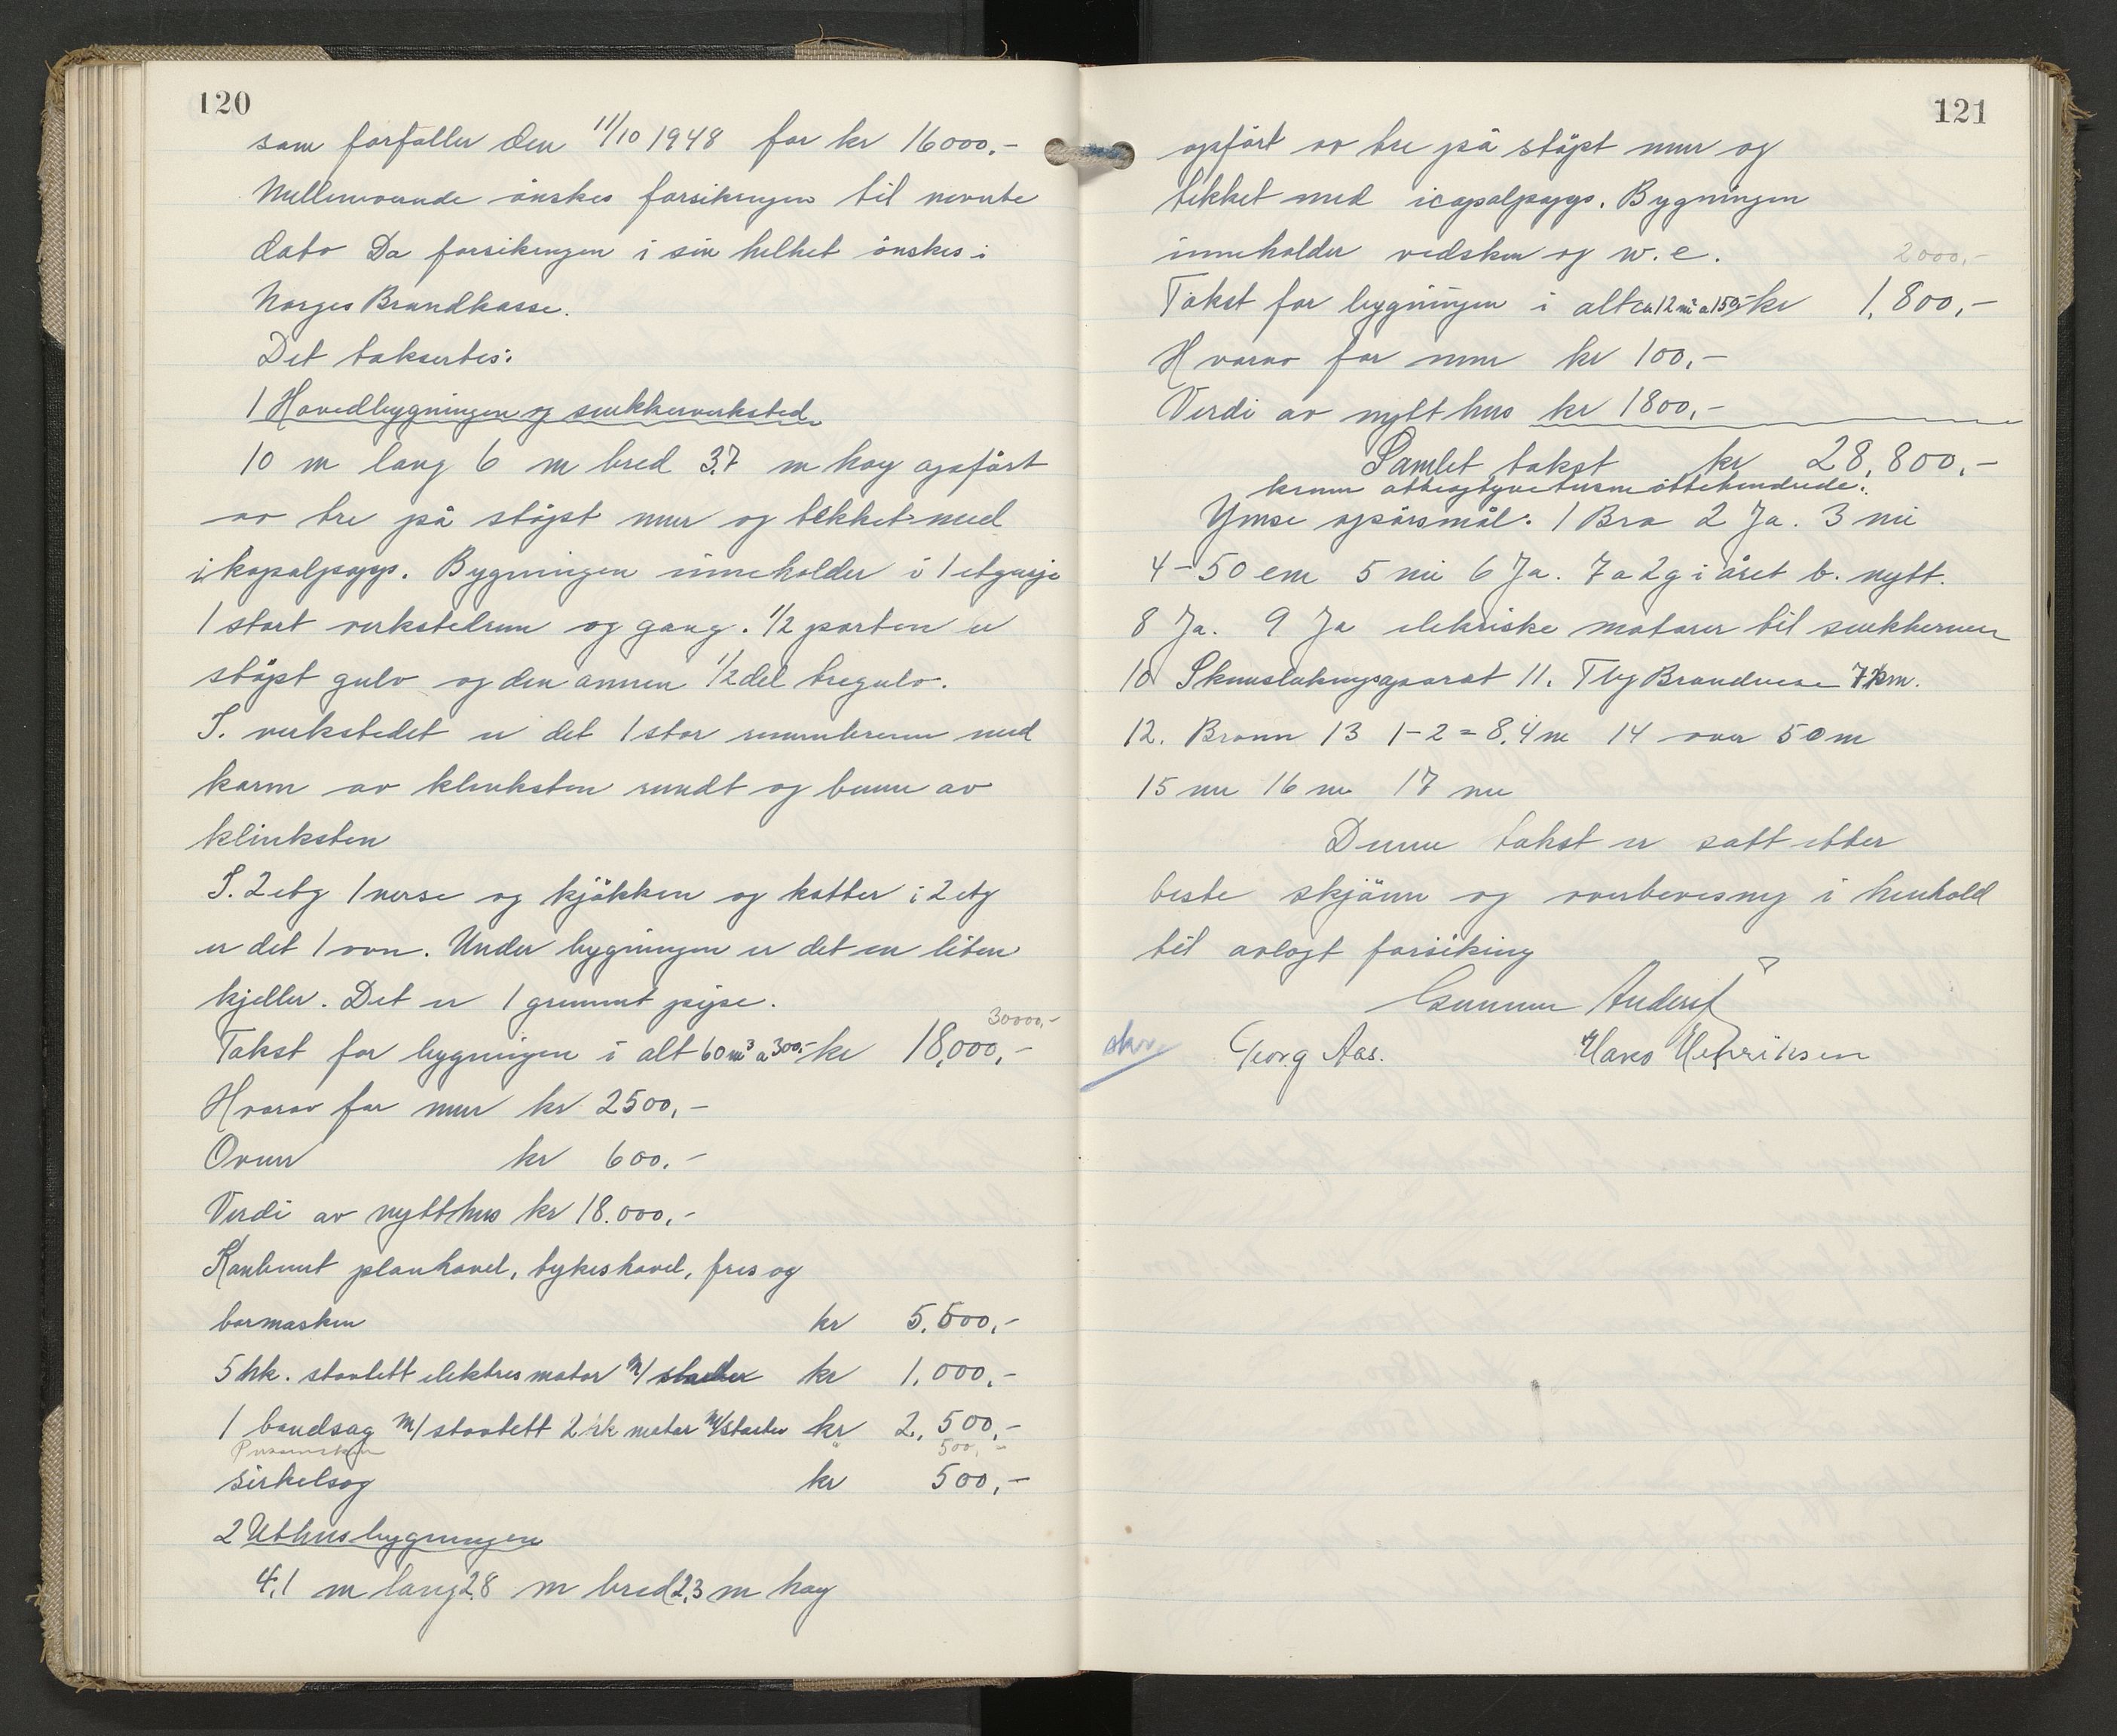 120
som forfaller den 11/10 1948 for kr 16000,-
Mellemverende ønskes forsikringen til nevnte
dato Da forsikringen i sin helhet ønskes i
Norges Brandkasse.
Det taksertes:
1 Hovedbygningen og snekkerverksted
10 m lang 6 m bred 3,7 m høy opført
av tre på støpt mur og tekket med
ikopalpapp. Bygningen inneholder i 1 etgasje
1 stort verkstedrum og gang. 1/2 parten er
støpt gulv og den annen 1/2 del tregulv.
I. verkstedet er det 1 stor med
karm av klinksten rundt og bunn av
klinksten
I. 2 etg 1 verse og kjøkken og kott i 2 etg
er det 1 ovn. Under bygningen er det en liten
kjeller. Det er 1 grunnmt pipe.
30000,-
Takst for bygningen i alt 60 m³ a 300,- kr 18,000,-
Hvorav for mur kr 2500,-
Ovner kr 600,-
Verdi av nytt hus kr 18.000,-
Kombinert planhøvel, tykeshøvel, fres og
bormaskin kr 5,500,-
5 hk. støvtett elektresmotor m/ starter kr 1,000,-
1 bandsag m/ støvtett 2 hk motor m/starter kr 2,500,-
500,-
sirkelsag kr 500,-
2 Uthusbygningen
4,1 m lang 2,8 m bred 2,3 m høy
121
opført av tre på støpt mur og
tekket med icopalpapp. Bygningen
inneholder vedskur og w.c.
2000,-
Takst for bygningen i alt ca 12 m² a 150,- kr 1,800,-
Hvorav for mur kr 100,-
Verdi av nytt hus kr 1800,-
Samlet takst kr 28,800,-
kroner åtteogtyvetusenåttehundrede.
Ymse spørsmål: 1 Bra 2 Ja. 3 nei
4 - 50 cm 5 nei 6 Ja. 7 a 2 g i året b. nytt.
8 Ja. 9 Ja elekriske motorer til snekkerverk
10 Skumslukningsapparat 11. Tbg Brandvesen 7 km.
12. Brønn 13 1-2 = 8,4 m 14 over 50 m
15 nei 16 nei 17 nei
Denne takst er satt etter
beste skjønn og overbevisning i henhold
til avlagt forsikring
Gunnar Anders
skrev Georg Aas. Hans Henriksen